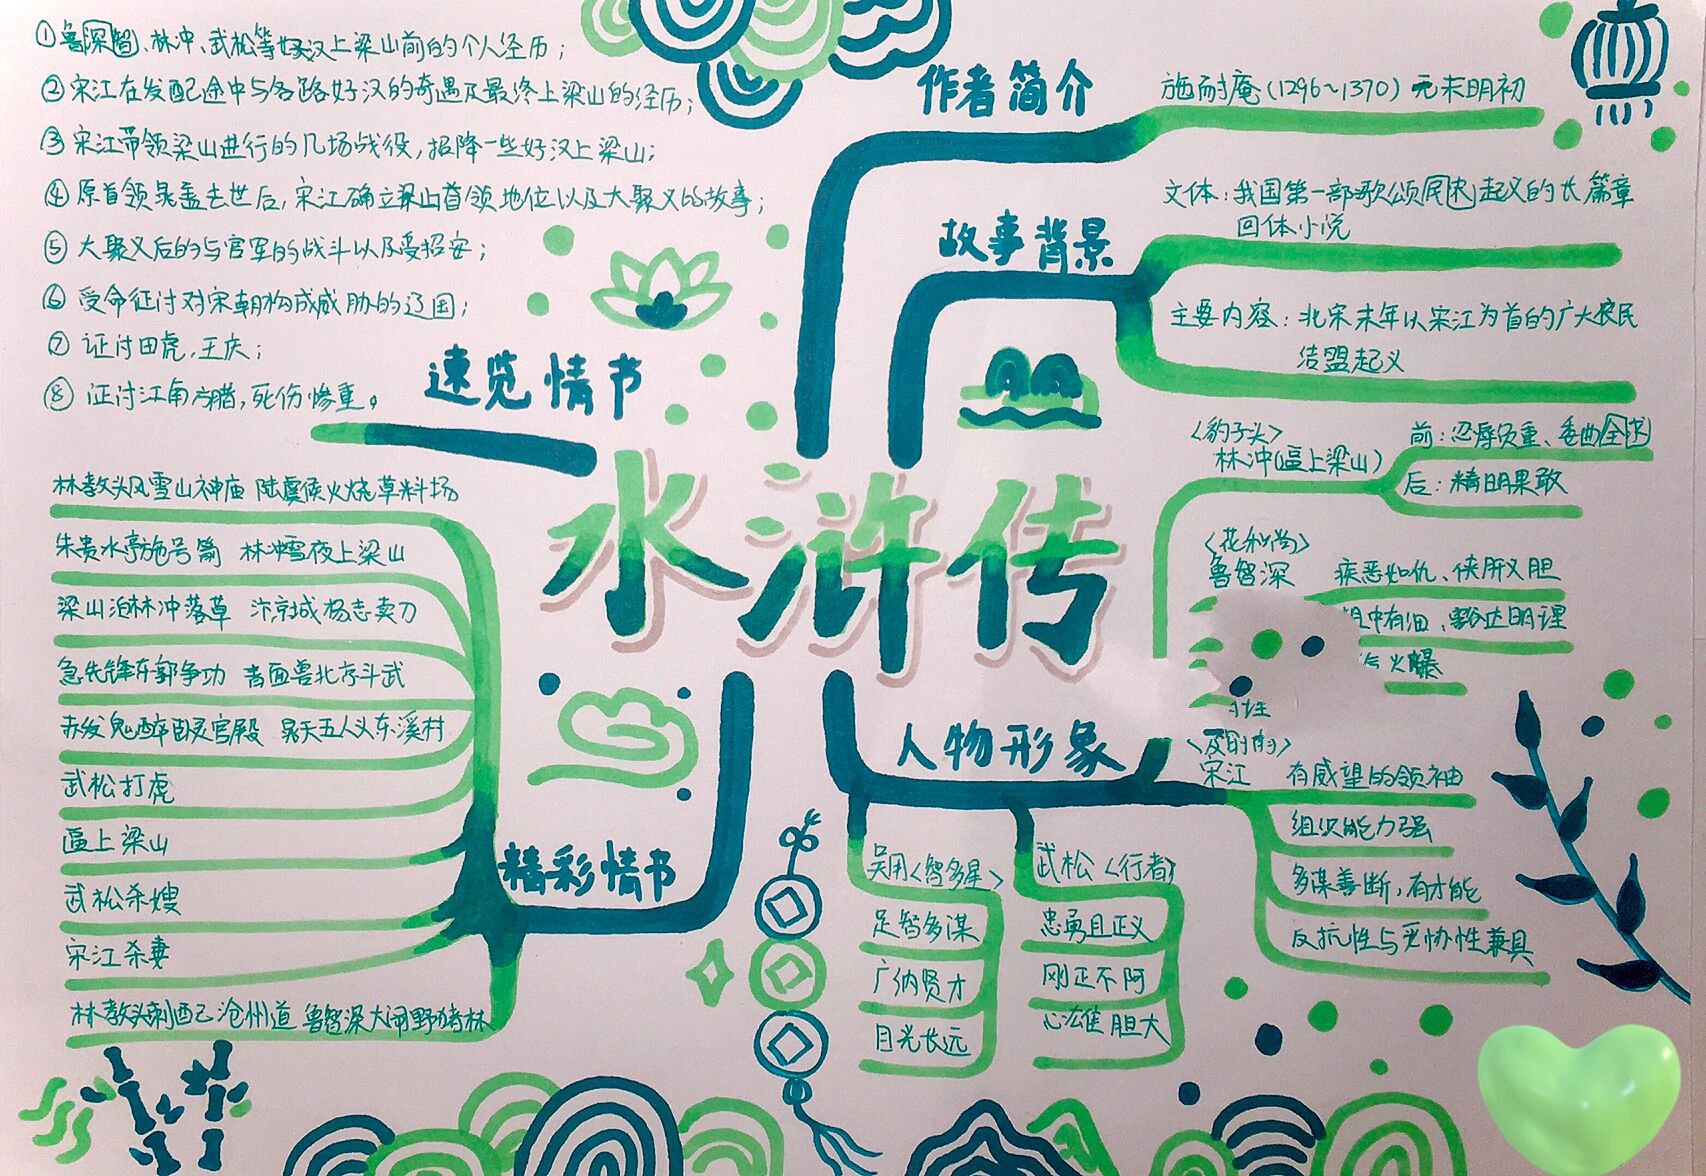 ①鲁深智、林冲、武松等好汉上梁山前的个人经历；
②宋江在发配途中与各路好汉的奇遇及最终上梁山的经历；
③宋江带领梁山进行的几场战役，招降一些好汉上梁山；
④原首领晁盖去世后，宋江确立梁山首领地位以及大聚义的故事；
⑤大聚义后的与官军的战斗以及受招安；
⑥受命征讨对宋朝构成威胁的辽国；
⑦证讨田虎，王庆；
⑧证讨江南方腊，死伤惨重。
速览情节
作者简介
施耐庵(1296~1370)元末明初
故事背景
文体：我国第一部歌颂民农起义的长篇章
回体小说
主要内容：北宋末年以宋江为首的广大农民
结盟起义
水浒传
林教头风雪山神庙 陆虞候火烧草料场
朱贵水亭施号箭 林冲雪夜上梁山
梁山泊林冲落草 汴京城杨志卖刀
急先锋东郭争功 青面兽北京斗武
赤发鬼醉卧灵官殿 晁天五人义东溪村
武松打虎
逼上梁山
武松杀嫂
宋江杀妻
林教头刺配沧州道 鲁智深大闹野猪林
精彩情节
人物形象
<豹子头>
林冲(逼上梁山)
前：忍辱负重、委曲全求
后：精明果敢
<花和尚>
鲁智深
疾恶如仇、侠肝义胆
粗中有细、豁达明理
火爆
<及时雨>
宋江
有威望的领袖
组织能力强
多谋善断，有才能
反抗性与妥协性兼具
吴用<智多星>
足智多谋
广纳贤才
目光长远
武松<行者>
忠勇且正义
刚正不阿
心雄胆大